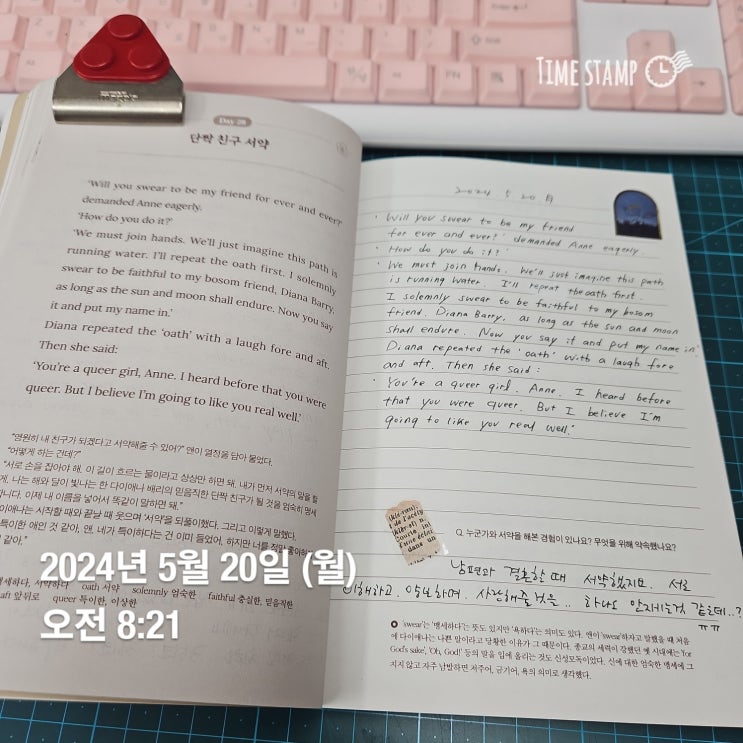 TIME STAMP
Day 28
단짝 친구 서약
'Will you swear to be my friend for ever and ever?'
demanded Anne eagerly.
'How do you do it?'
'We must join hands. We'll just imagine this path is
running water. I'll repeat the oath first. I solemnly
swear to be faithful to my bosom friend, Diana Barry,
as long as the sun and moon shall endure. Now you say
it and put my name in.'
Diana repeated the 'oath' with a laugh fore and aft.
Then she said:
'You're a queer girl, Anne. I heard before that you were
queer. But I believe I'm going to like you real well.'
"영원히 내 친구가 되겠다고 서약해줄 수 있어?" 앤이 열정을 담아 물었다.
"어떻게 하는 건데?"
"서로 손을 잡아야 해. 이 길이 흐르는 물이라고 상상만 하면 돼. 내가 먼저 서약의 말을 할
게. 나는 해와 달이 빛나는 한 다이애나 배리의 믿음직한 단짝 친구가 될 것을 엄숙히 맹세
합니다. 이제 내 이름을 넣어서 똑같이 말하면 돼."
다이애나는 시작할 때와 끝날 때 웃으며 '서약'을 되풀이했다. 그리고 이렇게 말했다.
특이한 애인 것 같아, 앤. 네가 특이하다는 건 이미 들었어. 하지만 너를 정말 좋아하
같아."
맹세하다, 서약하다 oath 서약 solemnly 엄숙한 faithful 충실한, 믿음직한
aft 앞뒤로 queer 특이한, 이상한
2024년 5월 20일 (월)
오전 8:21
2024 5 20 月
'Will you swear to be my friend
for ever and ever?' demanded Anne eagerly
'How do you do it?'
'We must join hands. We'll just imagine this path
is running water. I'll repeat the oath first.
I solemnly swear to be faithful to my bosom
friend, Diana Barry, as long as the sun and moon
shall endure. Now you say it and put my name in'
Diana repeated the 'oath' with a laugh fore
and aft. Then she said:
'You're a queer girl, Anne. I heard before
that you were queer. But I believe I'm
going to like you real well.'
Q. 누군가와 서약을 해본 경험이 있나요? 무엇을 위해 약속했나요?
남편과 결혼할 때 서약했지요. 서로
이해하고, 양보하며, 사랑해줄것을.. 하나도 안지키는것 같은데..?
ㅠㅠ
'swear'는 '맹세하다'는 뜻도 있지만 '욕하다'는 의미도 있다. 앤이 'swear'하자고 말했을 때 처음
에 다이애나는 나쁜 말이라고 당황한 이유가 그 때문이다. 종교의 세력이 강했던 옛 시대에는 'for
God's sake', 'Oh, God!' 등의 말을 입에 올리는 것도 신성모독이었다. 신에 대한 엄숙한 맹세에 그
치지 않고 자주 남발하면 저주어, 금기어, 욕의 의미로 생각했다.